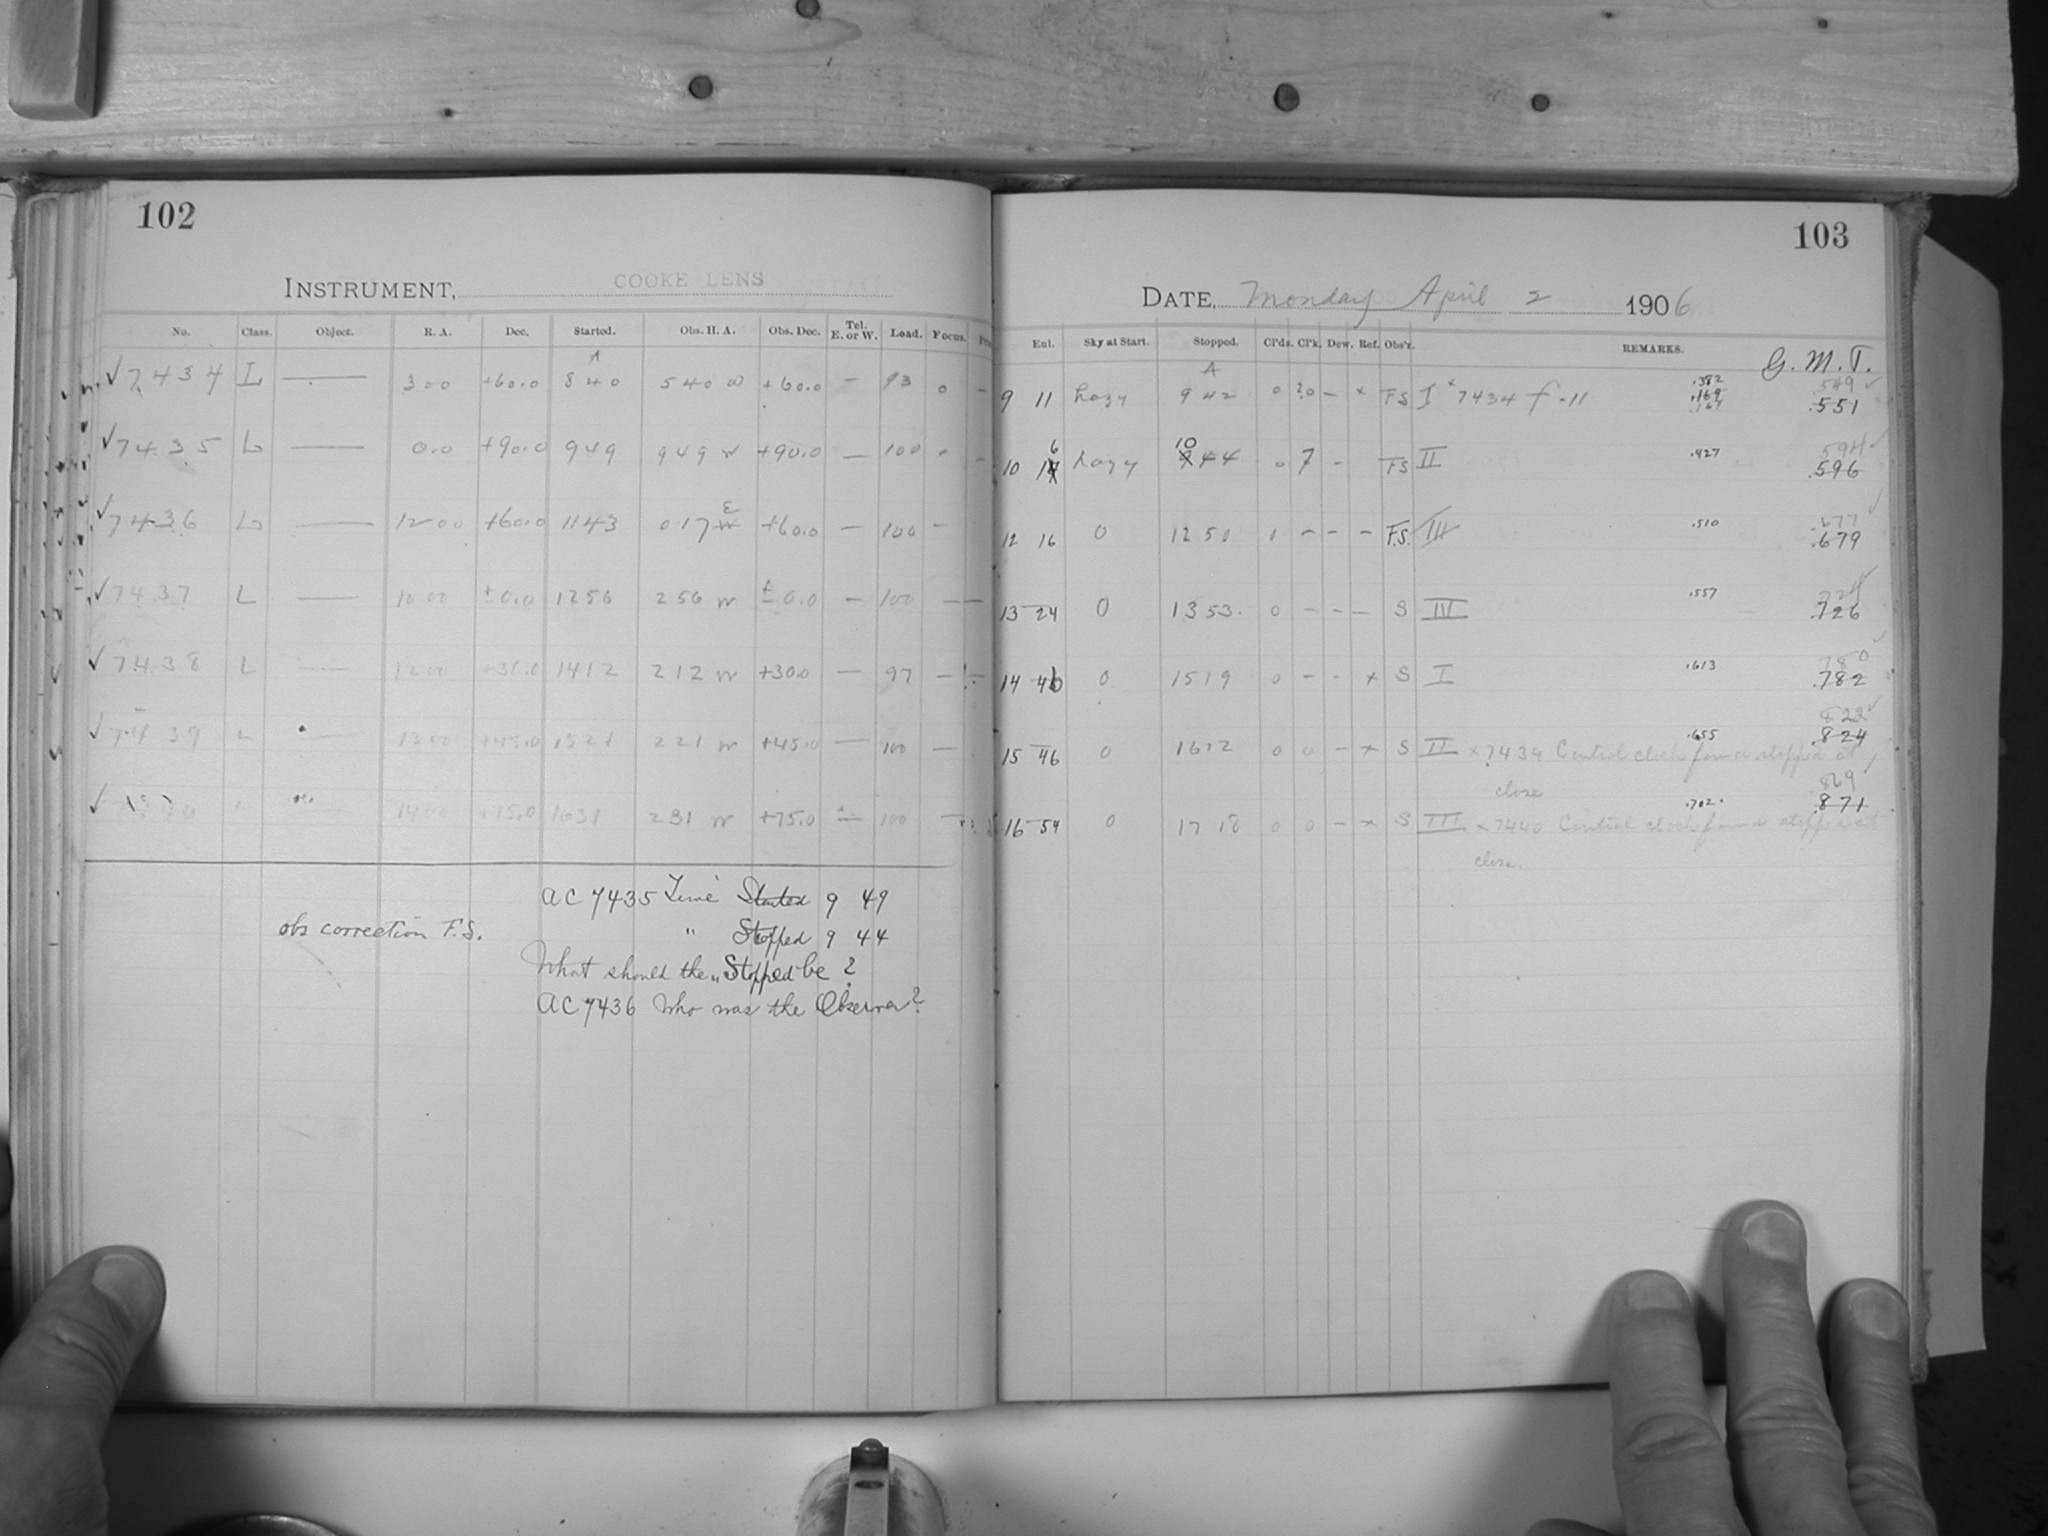 102
INSTRUMENT, COOKE LENS
No. Class. Object. R. A. Dec. Started. Obs. H. A. Obs. Dec. Tel. E. or W. Load. Focus.
A
√7434 L — 3 00 +60.0 8 40 5 40 W +60.0 — 93 0 -
√7435 L — 0.0 +90.0 9 49 9 49 W +90.0 — 100
√7436 L — 12 00 +60.0 11 43 0 17 W E +60.0 — 100 -
√7437 L — 10 00 ±0.0 12 56 2 56 W ±0.0 — 100 —
√7438 L — 12 00 +30.0 14 12 2 12 W +30.0 — 97 —
√7439 L — 13 00 +45.0 15 21 2 21 W +45.0 — 100 —
√ 14 00 +75.0 16 31 2 31 W +75.0 — 100 —
AC 7435 Time Started 9 49
obs correction F.S. " Stopped 9 44
What should the "Stopped be?
AC 7436 Who was the Observer?
103
DATE, Monday April 2 1906
Ent. Sky at Start. Stopped. Cl'ds. Cl'k. Dew. Ref. Obs'r. REMARKS. G. M. T.
A
9 11 hazy 9 42 0 20 — x FS I x 7434 f-11 .382 .169 .167 549 .551
10 6 hazy 10 44 0 7 - FS II .427 594 .596
12 16 0 12 50 1 - - - F.S. III .510 .677 .679
13 24 0 13 53. 0 - - - S IV .557 724 .726
14 46 0 15 19 0 - - x S I .613 780 .782
15 46 0 16 12 0 0 - x S II x 7439 Control clock found stopped at .655 822 .824
close
16 54 0 17 18 0 0 - x S III x 7440 Control clock found stopped at .702 869 .871
close.